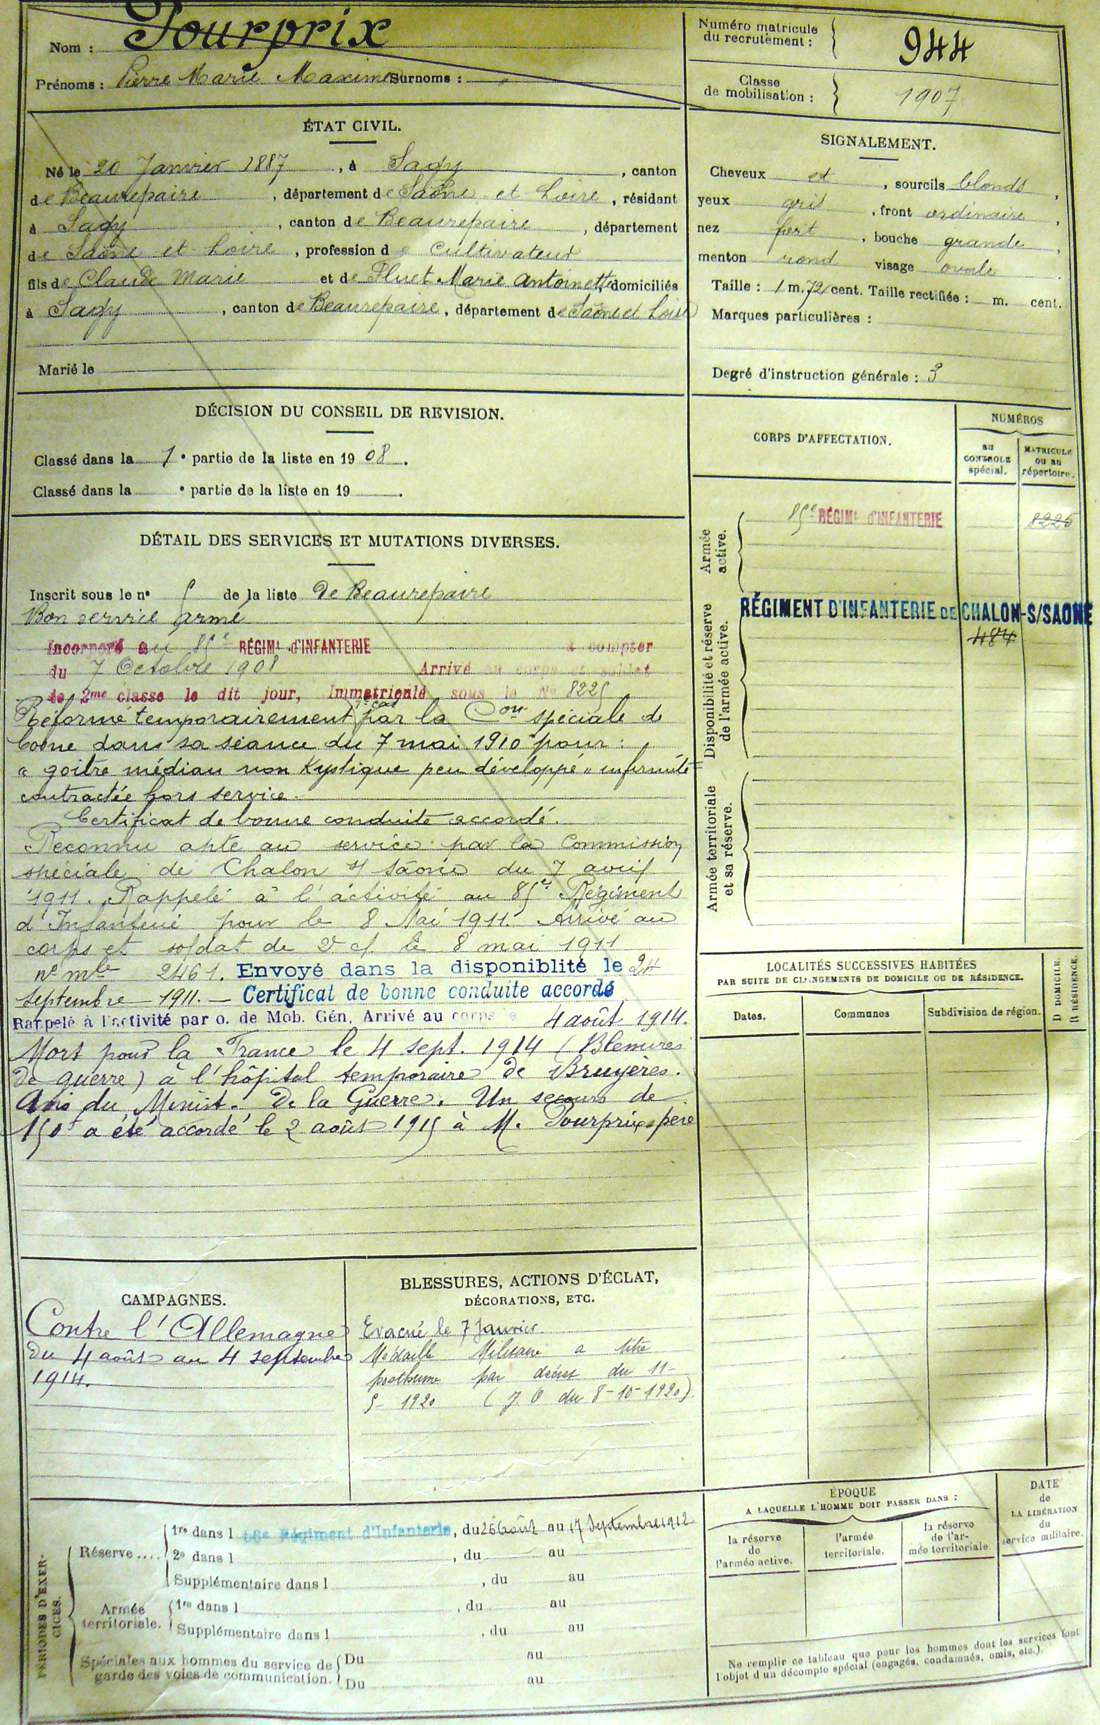 Nom : Pourprix
Prénoms : Pierre Marie Maxime Surnoms :
Numéro matricule
du recrutement : 944
Classe
de mobilisation : 1907
ÉTAT CIVIL.
Né le 20 Janvier 1887, à Sagy, canton
de Beaurepaire, département de Saône et Loire, résidant
à Sagy, canton de Beaurepaire, département
de Saône et Loire, profession de cultivateur
fils de Claude Marie et de Pluet Marie Antoinette, domiciliés
à Sagy, canton de Beaurepaire, département de Saône et Loire
Marié le
SIGNALEMENT.
Cheveux et, sourcils blonds,
yeux gris, front ordinaire,
nez fort, bouche grande,
menton rond visage ovale.
Taille : 1 m. 72 cent. Taille rectifiée : m. cent.
Marques particulières :
Degré d'instruction générale : 3
DÉCISION DU CONSEIL DE REVISION.
Classé dans la 1e partie de la liste en 1908.
Classé dans la e partie de la liste en 19 .
DÉTAIL DES SERVICES ET MUTATIONS DIVERSES.
Inscrit sous le n° 5 de la liste de Beaurepaire
Bon service armé
Incorporé au 85e RÉGIMt D'INFANTERIE à compter
du 7 Octobre 1908 Arrivé au corps et soldat
de 2me classe le dit jour, Immatriculé sous le No 8225
Réformé temporairement par la Con spéciale de
Cosne dans sa séance du 7 mai 1910 pour :
"goitre médian non Kystique peu développé" infirmité
contractée hors service.
Certificat de bonne conduite accordé.
Reconnu apte au service par la Commission
spéciale de Chalon s/ Saône du 7 avril
1911. Rappelé à l'activité au 85e Régiment
d'Infanterie pour le 8 Mai 1911. Arrivé au
corps et soldat de 2e cl le 8 mai 1911
n° mle 2461. Envoyé dans la disponiblité le 24
septembre 1911. — Certificat de bonne conduite accordé
Rappelé à l'activité par o. de Mob. Gén. Arrivé au corps le 4 août 1914.
Mort pour la France le 4 sept. 1914 (Blessures
de guerre) à l'hôpital temporaire de Bruyères.
Avis du Minist. de la Guerre. Un secours de
150f a été accordé le 2 août 1915 à M. Pourprix père
CORPS D'AFFECTATION.
NUMÉROS
au
CONTROLE
spécial.
MATRICULE
ou au
répertoire.
Armée
active.
85e RÉGIMt D'INFANTERIE 8225
Disponibilité et réserve
de l'armée active.
RÉGIMENT D'INFANTERIE DE CHALON-S/SAONE
484
Armée territoriale
et sa réserve.
LOCALITÉS SUCCESSIVES HABITÉES
PAR SUITE DE CHANGEMENTS DE DOMICILE OU DE RÉSIDENCE.
Dates.
Communes
Subdivision de région.
D DOMICILE.
R RÉSIDENCE.
CAMPAGNES.
Contre l'Allemagne
du 4 août au 4 septembre
1914.
BLESSURES, ACTIONS D'ÉCLAT,
DÉCORATIONS, ETC.
Evacué le 7 Janvier
Médaille Militaire a titre
posthume par décret du 11-
5- 1920 (J. O du 8-10-1920)
PÉRIODES D'EXER-
CICES.
Réserve ....
1re dans l 56e Régiment d'Infanterie, du 26 août au 17 Septembre 1912
2e dans l , du au
Supplémentaire dans l , du au
Armée
territoriale.
1re dans l , du au
Supplémentaire dans l , du au
Spéciales aux hommes du service de
garde des voies de communication.
Du au
Du au
ÉPOQUE
A LAQUELLE L'HOMME DOIT PASSER DANS :
la réserve
de
l'armée active.
l'armée
territoriale.
la réserve
de l'ar-
mée territoriale.
DATE
de
LA LIBÉRATION
du
service militaire.
Ne remplir ce tableau que pour les hommes dont les services font
l'objet d'un décompte spécial (engagés, condamnés, omis, etc.).